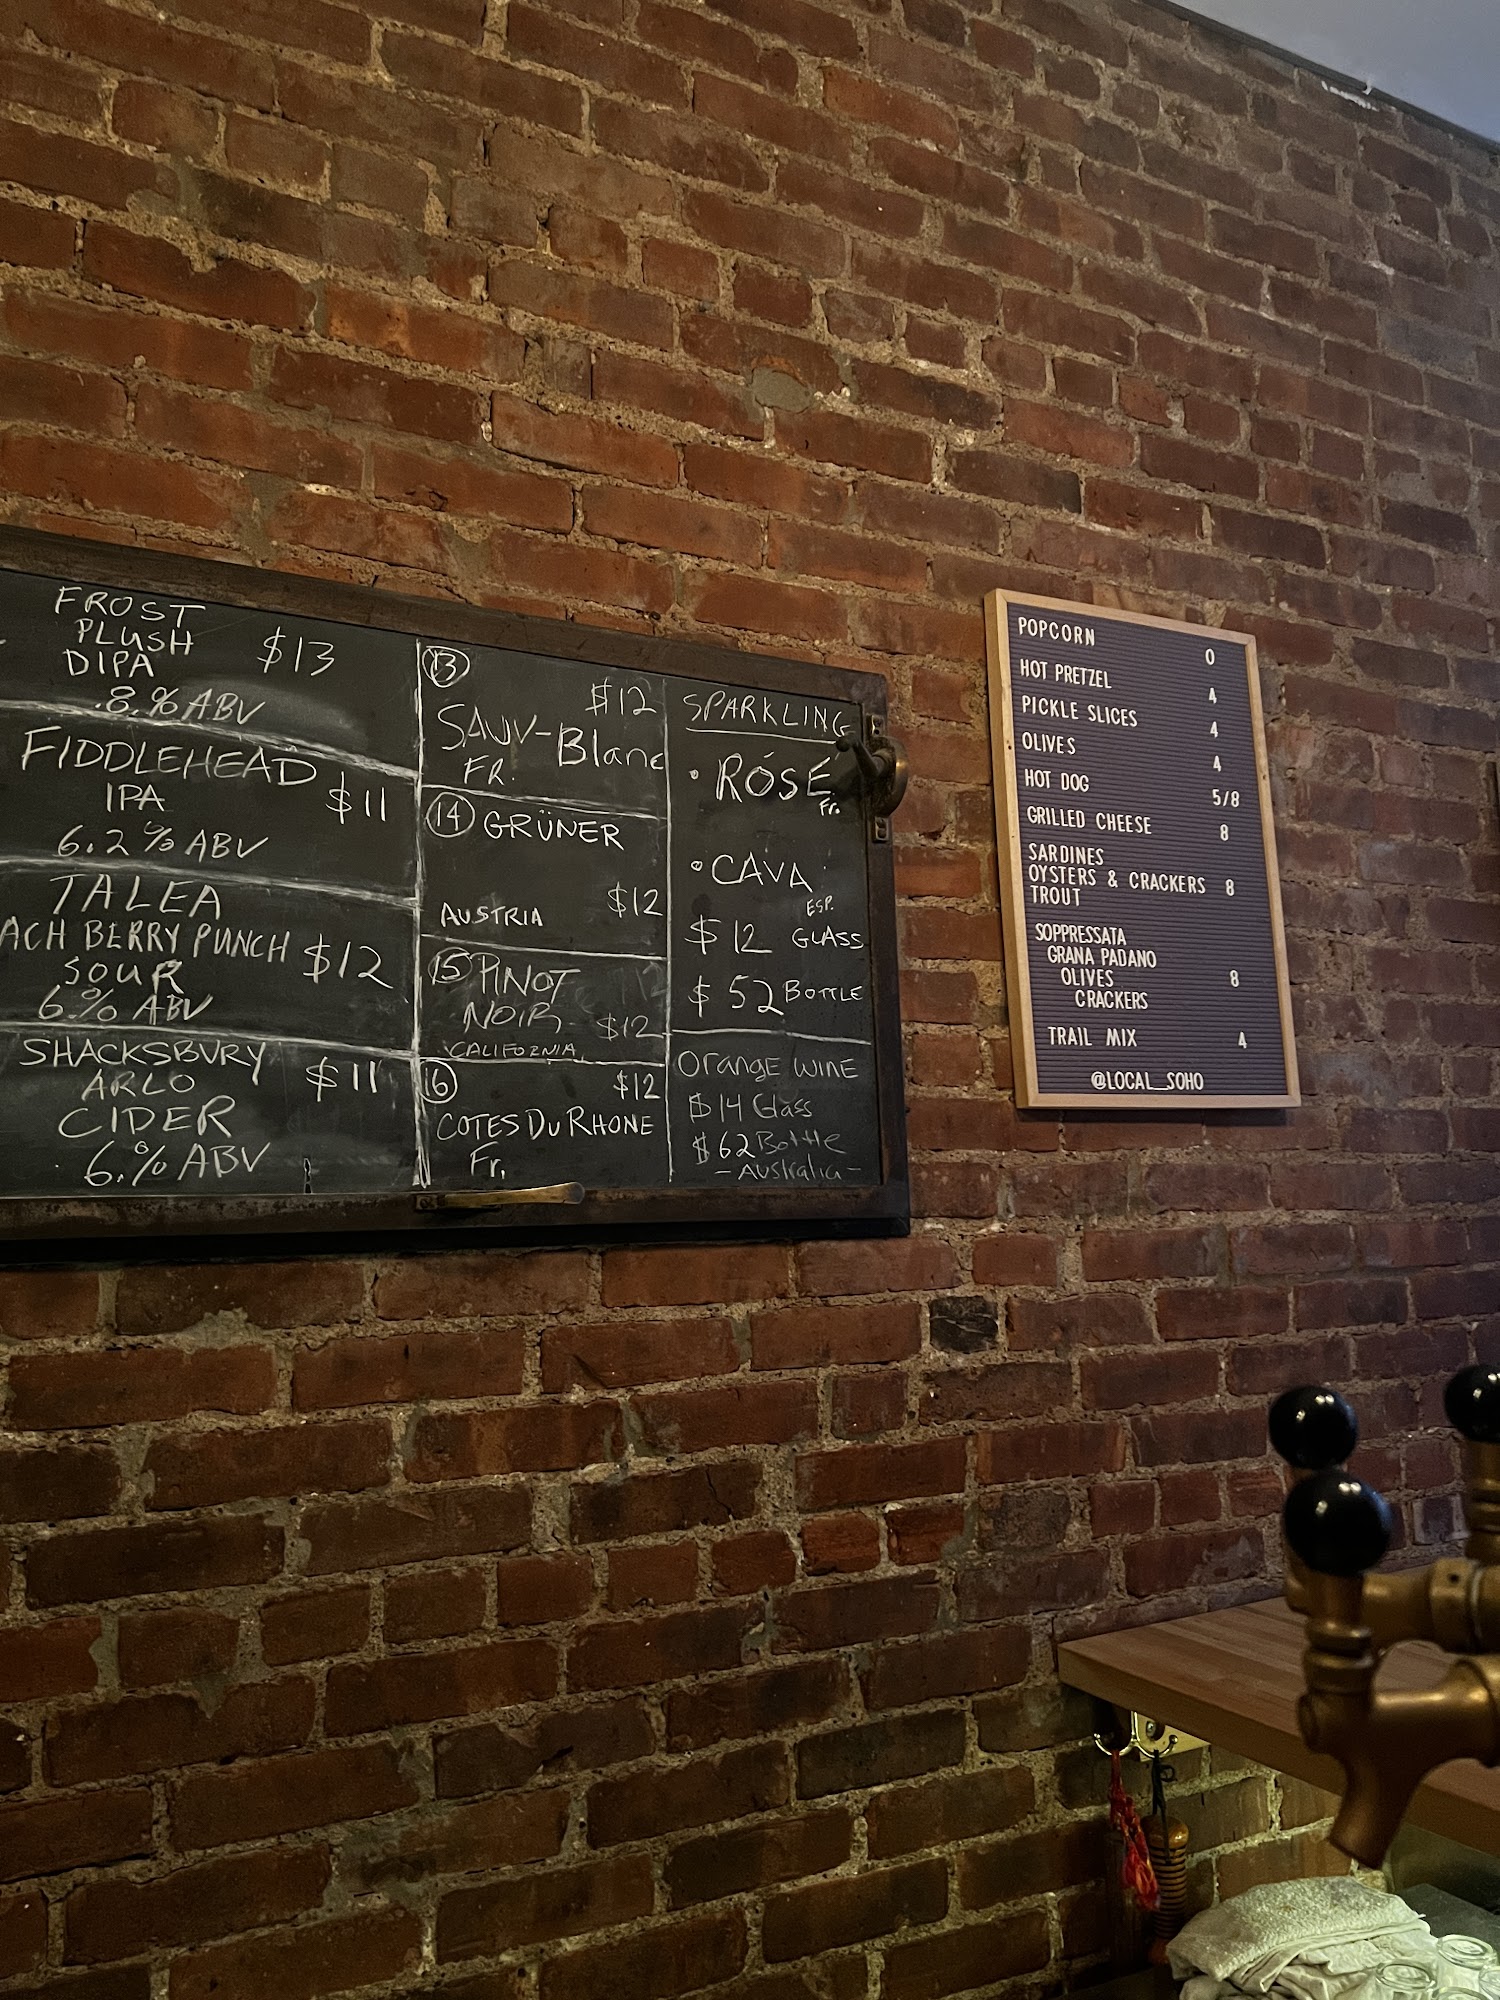 FROST
PLUSH
DIPA
$13
.8.% ABV
FIDDLEHEAD
IPA
$11
6.2% ABV
TALEA
ACH BERRY PUNCH $12
SOUR
6.% ABV
SHACKSBURY
ARLO
$11
CIDER
6.% ABV
13
$12
SAUV-Blanc
FR.
14 GRÜNER
AUSTRIA $12
15 PINOT
NOIR $12
CALIFORNIA
16 $12
COTES DU RHONE
Fr.
SPARKLING
• ROSÉ
Fr.
• CAVA
ESP.
$12 GLASS
$52 BOTTLE
Orange WINE
$14 Glass
$62 Bottle
- Australia -
POPCORN 0
HOT PRETZEL 4
PICKLE SLICES 4
OLIVES 4
HOT DOG 5/8
GRILLED CHEESE 8
SARDINES
OYSTERS & CRACKERS 8
TROUT
SOPPRESSATA
GRANA PADANO
OLIVES 8
CRACKERS
TRAIL MIX 4
@LOCAL_SOHO